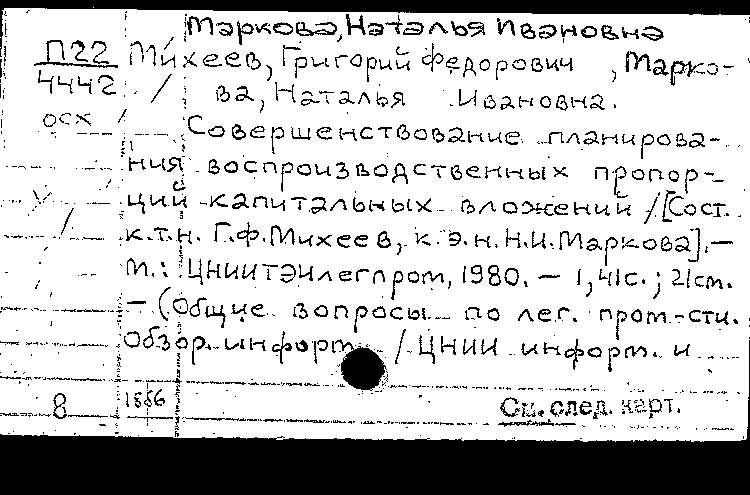 Маркова, Наталья Ивановна
П22 Михеев, Григорий Федорович, Марко-
4442 ва, Наталья Ивановна.
осх Совершенствование планирова-
ния воспроизводственных пропор-
ций капитальных вложений / [Сост.
к.т.н. Г.Ф.Михеев, к.э.н. Н.И.Маркова]. –
М.: ЦНИИТЭИлегпром, 1980. – 1, 41с.; 21см.
– (Общие вопросы по лег. пром-сти.
Обзор. информ. / ЦНИИ информ. и
8 1556 См. след. карт.